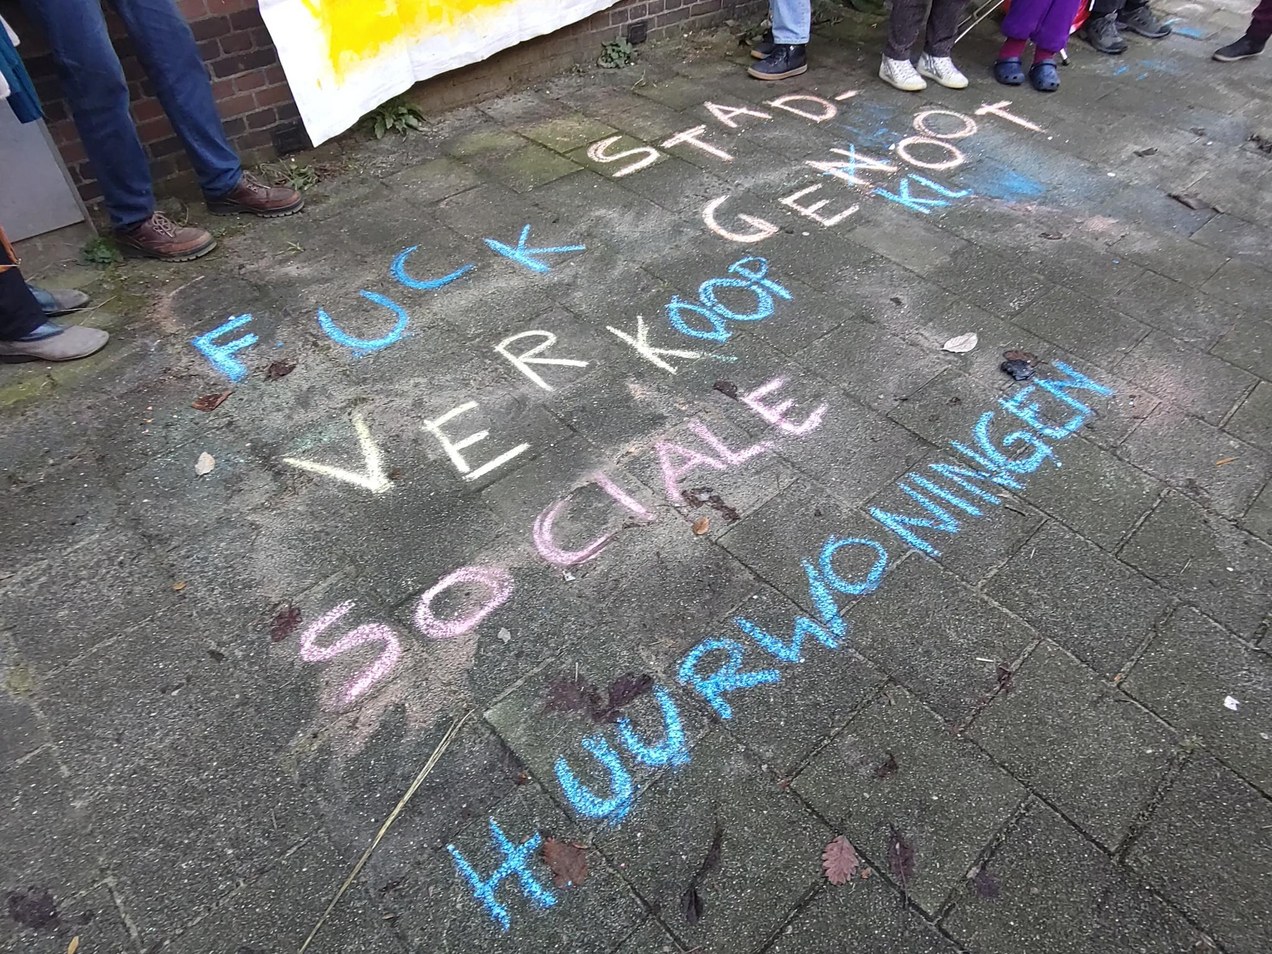 STAD-
GENOOT
KL
FUCK
VERKOOP
SOCIALE
HUURWONINGEN